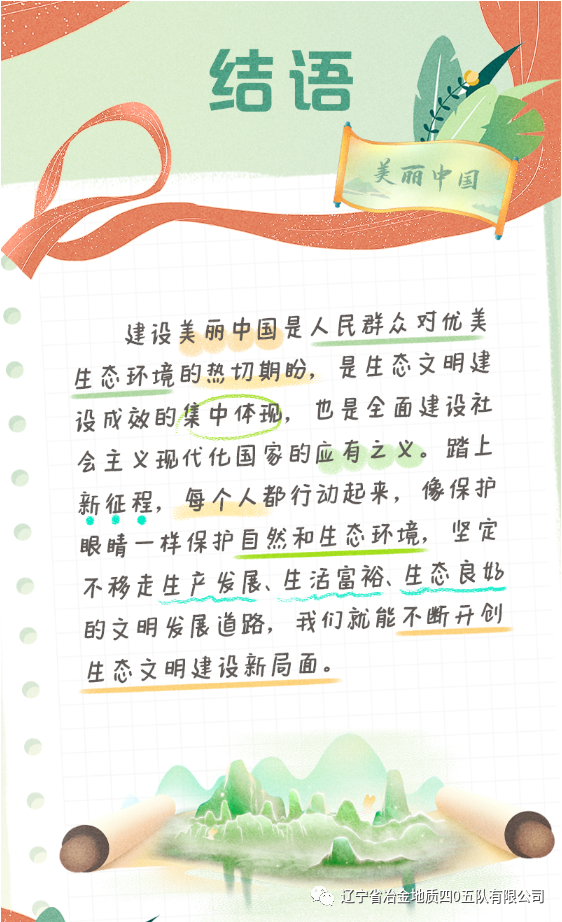 结语
美丽中国
建设美丽中国是人民群众对优美
生态环境的热切期盼，是生态文明建
设成效的集中体现，也是全面建设社
会主义现代化国家的应有之义。踏上
新征程，每个人都行动起来，像保护
眼睛一样保护自然和生态环境，坚定
不移走生产发展、生活富裕、生态良好
的文明发展道路，我们就能不断开创
生态文明建设新局面。
辽宁省冶金地质四0五队有限公司